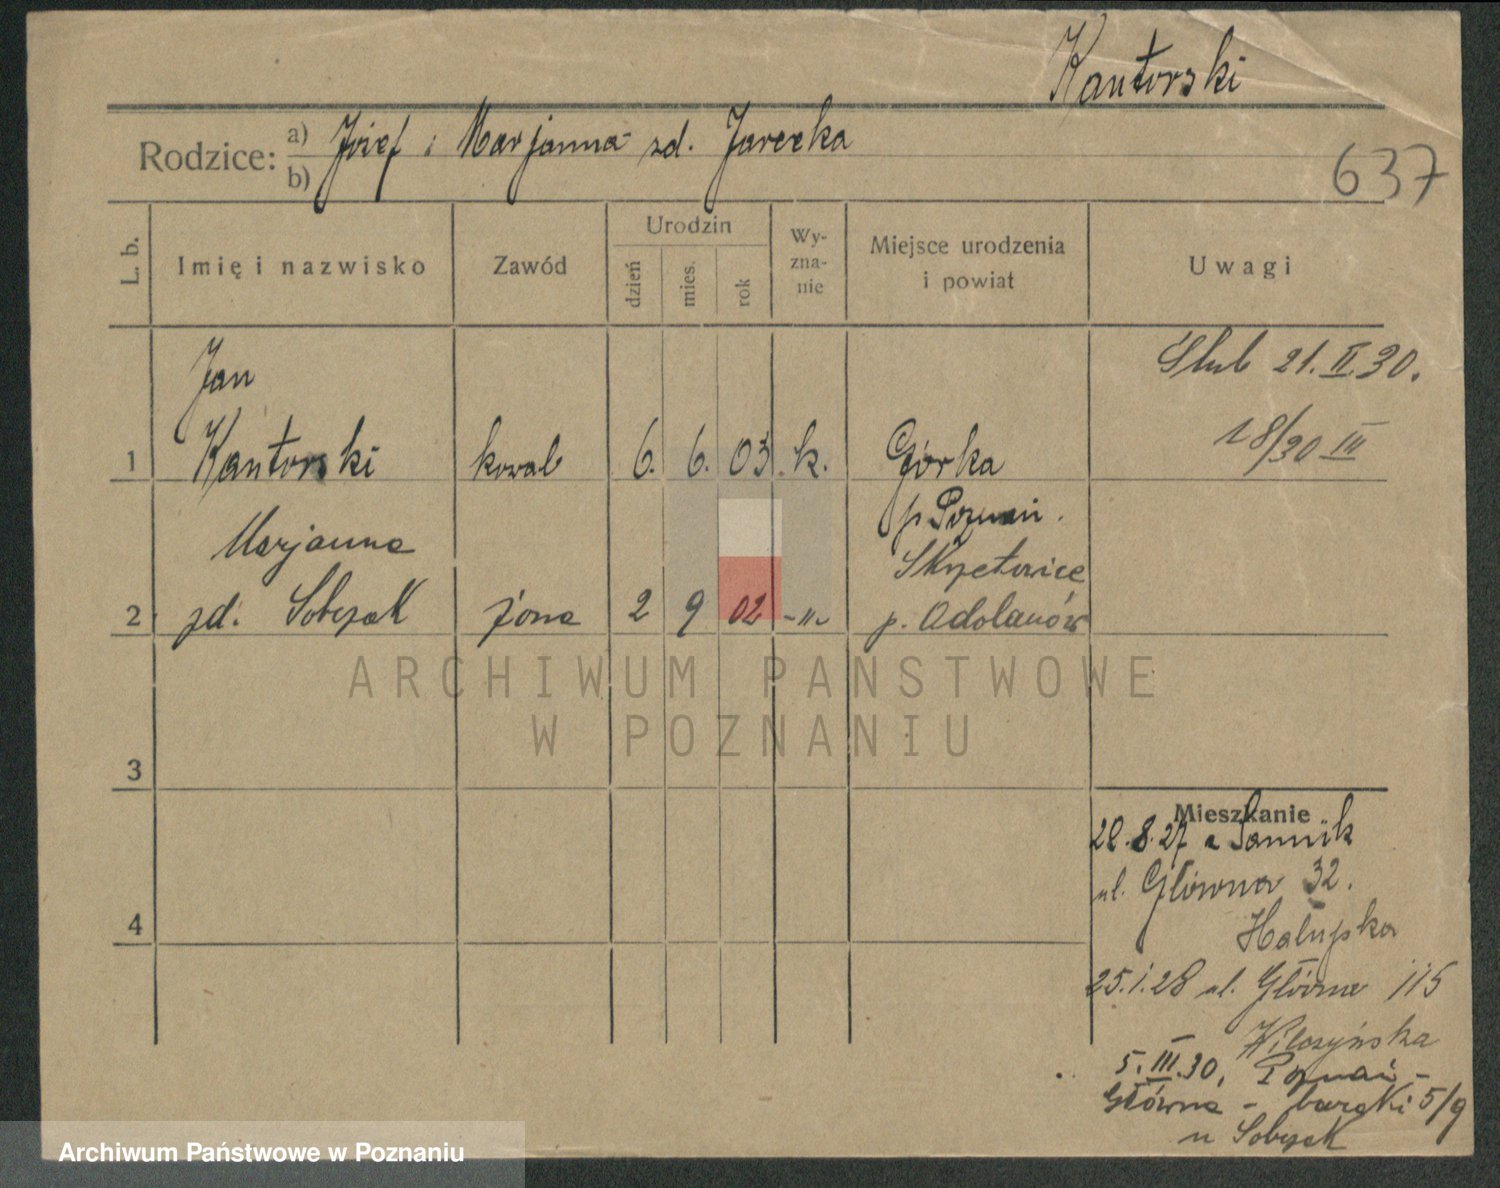 Kantorski
Rodzice: a) Józef i Marjanna zd. Jarecka
b)
637
L. b.
Imię i nazwisko
Zawód
Urodzin
dzień
mies.
rok
Wy-
zna-
nie
Miejsce urodzenia
i powiat
Uwagi
Jan
Ślub 21.II.30.
18/30 III
1 Kantorski kowal 6. 6. 03 k. Górka
p. Poznań.
Marjanna Skrzetowice
2 zd. Sobczak żona 2 9 02 -"- p. Adolanów
ARCHIWUM PAŃSTWOWE
W POZNANIU
3
Mieszkanie
28.8.27 z Sannik
ul. Główna 32.
4
Hałupska
25.1.28 ul. Główna 115
Wilczyńska
5.III.30, Poznań -
Główna - baraki 5/9
u Sobczak
Archiwum Państwowe w Poznaniu